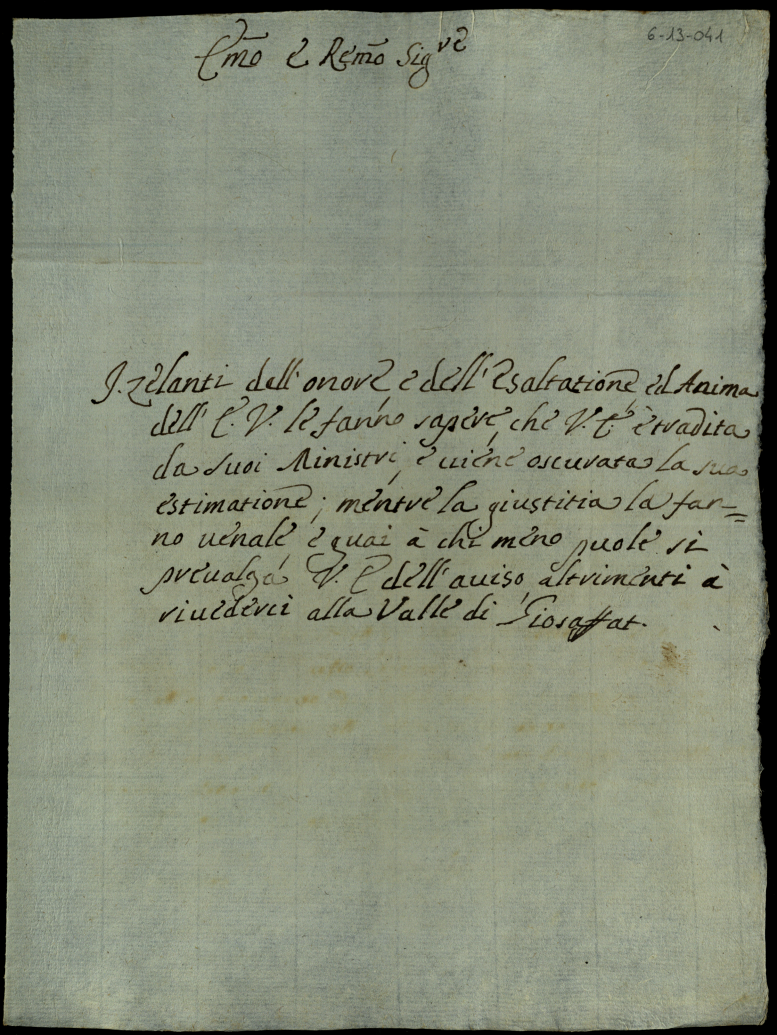 6-13-041
Emo e Remo Sig.re
I zelanti dell'onore, e dell'esaltatione, ed Anima
dell'E. V. le fanno sapere, che V. E. è tradita
da suoi Ministri, e uiene oscurata la sua
estimatione; mentre la giustitia la fan=
no uenale, e guai à chi meno puole si
preualga V. E. dell'auiso altrimenti à
riuederci alla Valle di Giosaffat.